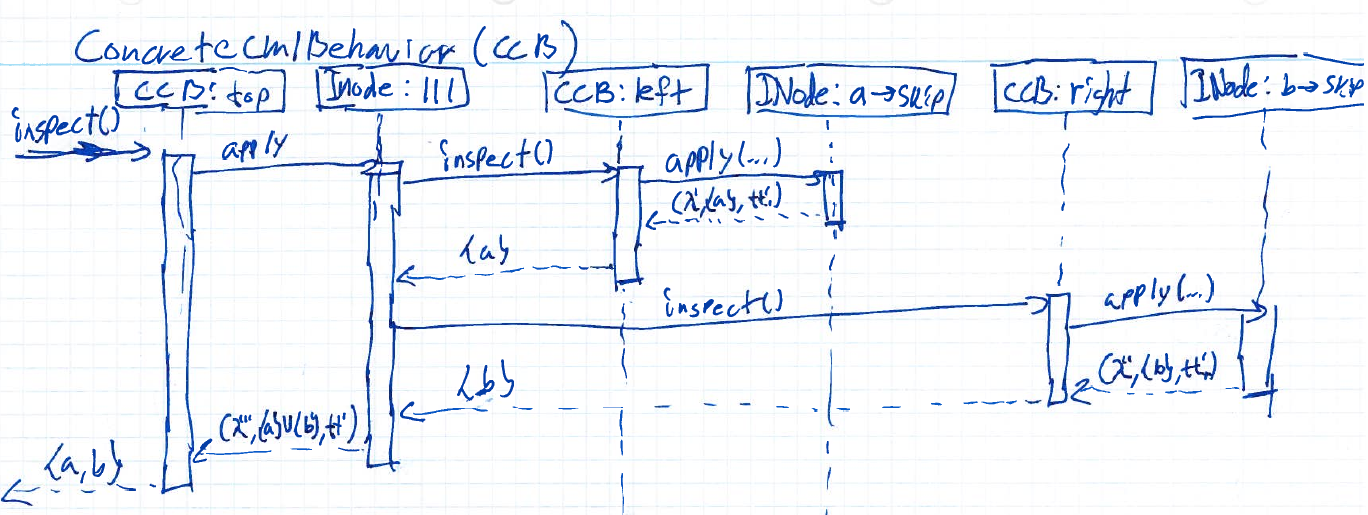 ConcreteCmlBehavior (CCB)
CCB: top
INode: |||
CCB: left
INode: a→Skip
CCB: right
INode: b→Skip
inspect()
apply
inspect()
apply(...)
{a}
inspect()
apply(...)
{b}
{a,b}